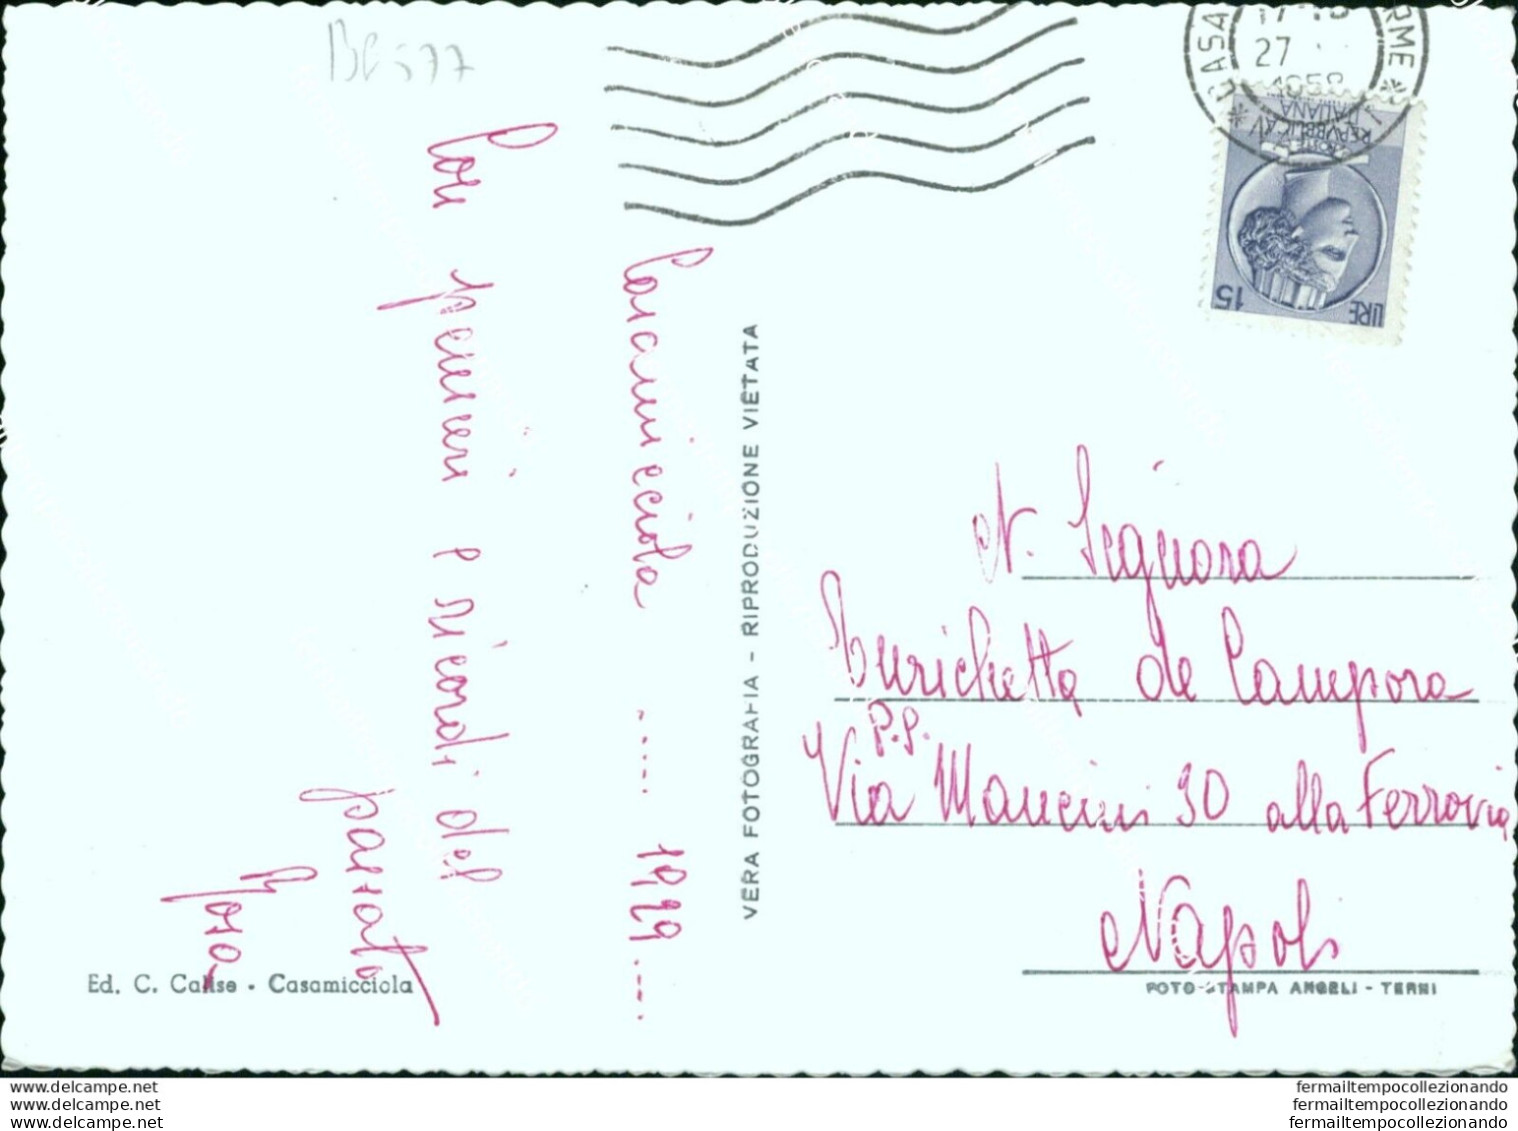 BC577
Casamicciola ..... 1929.....
Con pensieri e ricordi del
passato
Rosa
Ed. C. Calise - Casamicciola
VERA FOTOGRAFIA - RIPRODUZIONE VIETATA
CASA
RME
17-18
27
1958
REPVBBLICA
ITALIANA
LIRE 15
N. Signora
Enrichetta de Campora
P.S.
Via Mancini 30 alla Ferrovia
Napoli
FOTO-STAMPA ANGELI - TERNI
www.delcampe.net
www.delcampe.net
www.delcampe.net
fermailtempocollezionando
fermailtempocollezionando
fermailtempocollezionando